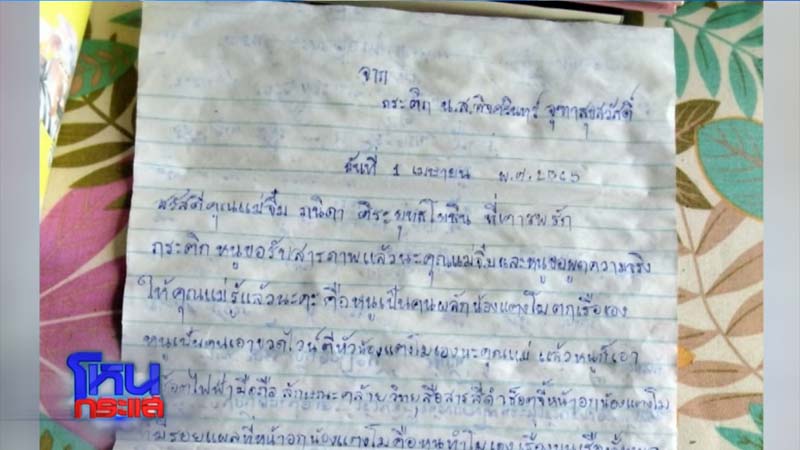 จาก
กระติก น.ส.อิจศรินทร์ จุฑาสุขสวัสดิ์
วันที่ 1 เมษายน พ.ศ. 2565
สวัสดีคุณแม่จี๋ม ภนิดา ศิระยุทธโยธิน ที่เคารพรัก
กระติก หนูขอรับสารภาพแล้วนะคุณแม่จี๋มและหนูขอพูดความจริง
ให้คุณแม่รู้แล้วนะคะ คือหนูเป็นคนผลักน้องแตงโมตกเรือเอง
หนูเป็นคนเอาขวดไวน์ตีหัวน้องแตงโมเองนะคุณแม่ แล้วหนูก็เอา
ช็อตไฟฟ้ามือถือ ลักษณะคล้ายวิทยุสื่อสารสีดำช็อตที่หน้าอกน้องแตงโม
มีรอยแผลที่หน้าอกน้องแตงโมคือหนูทำ
โหน
กระแส